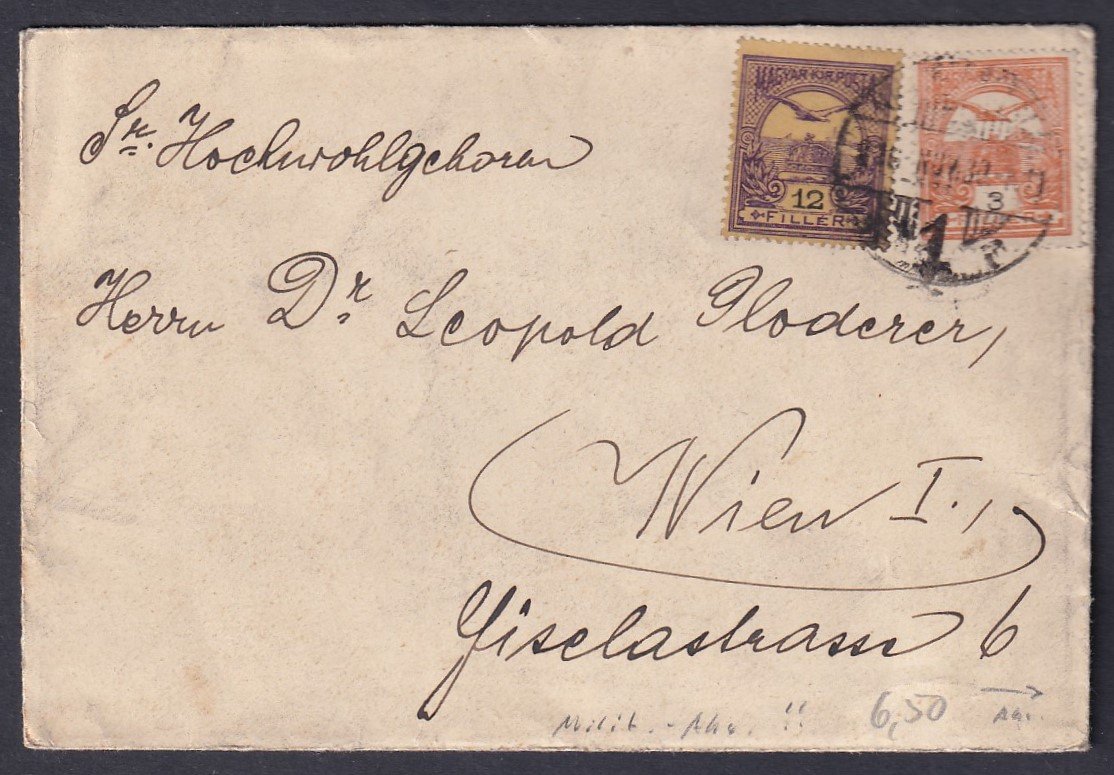 Sr. Hochwohlgeboren
Herrn Dr. Leopold Gloderer,
Wien I.,
Giselastrasse 6
MAGYAR KIR. POSTA
12
FILLÉR
3
1
6,50
Milit. - !!